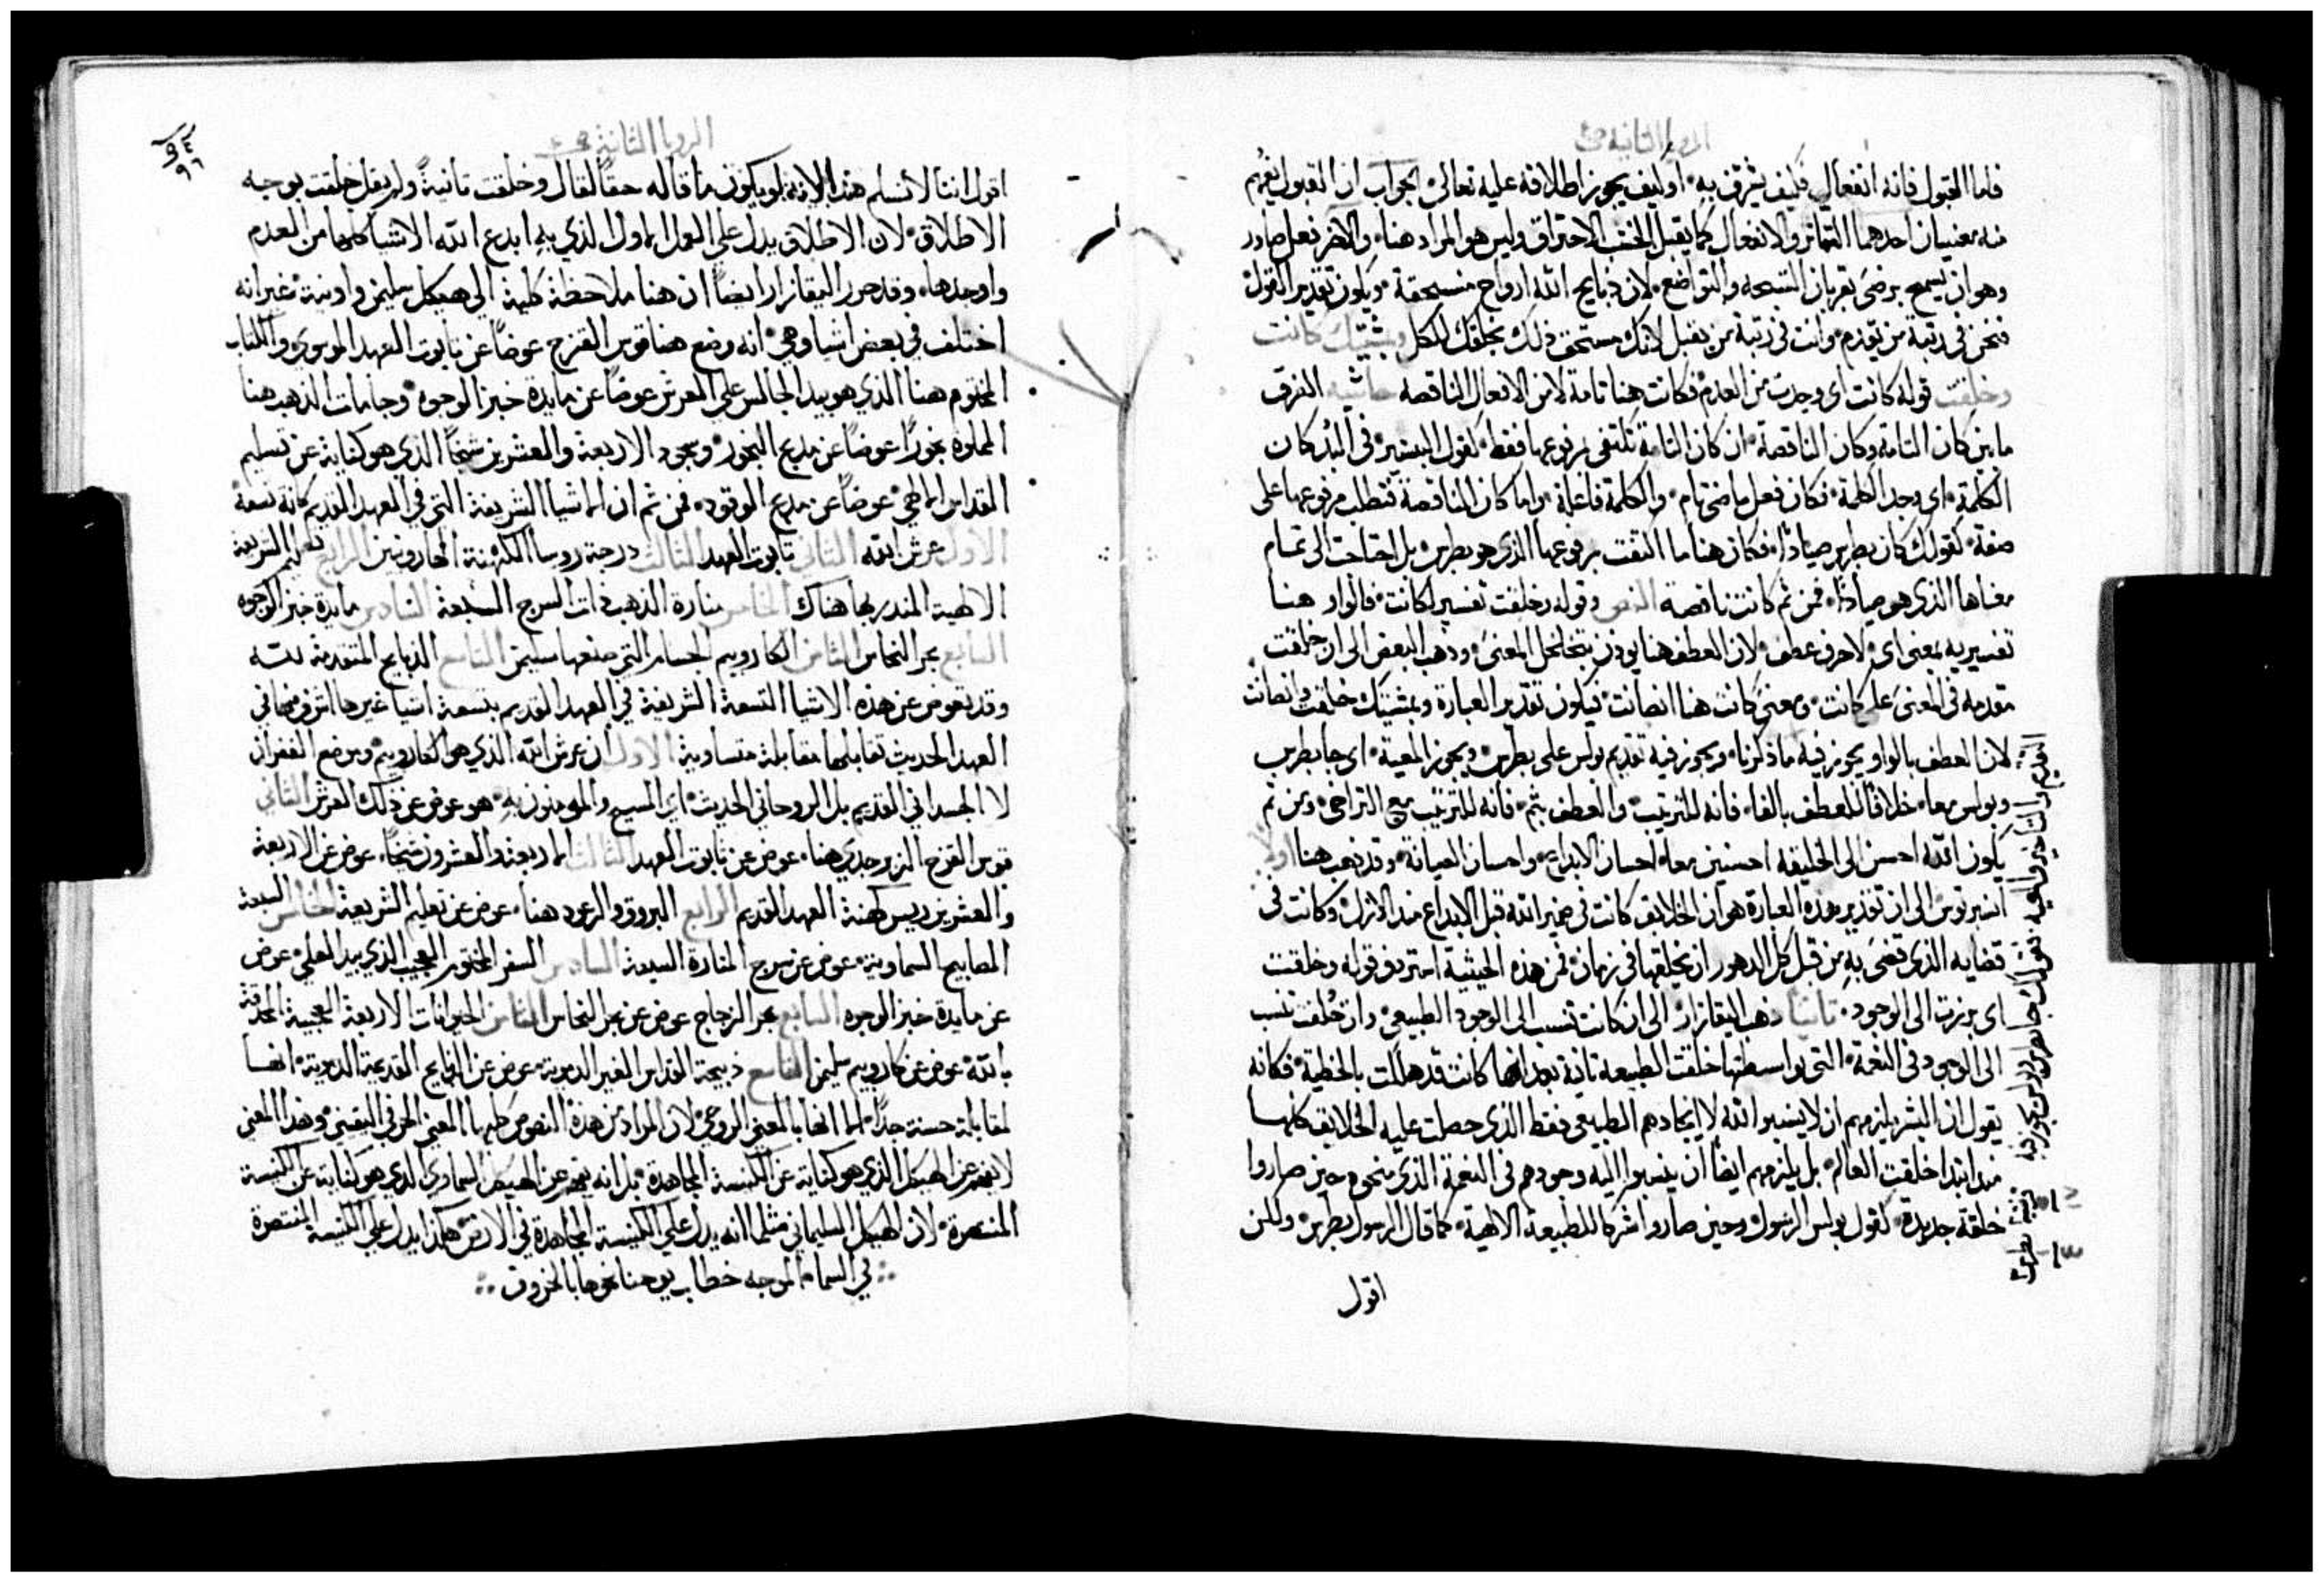 الرويا الثانية ص٤
فاما القبول فانه انفعال فكيف يشرف به او كيف يجوز اطلاقه عليه تعالى الجواب ان القبول يفهم
منه معنيان احدهما التاثر والانفعال كما يقبل الخشب الاحتراق وليس هو المراد هنا والاخر فعل صادر
وهو ان يسمح برضى بقربان التسبحه والتواضع لان ذبايح الله ارواح منسحقة ويكون تقدير القول
فنحن في رتبة من يقدم وانت في رتبة من يقبل لانك مستحق ذلك بخلقك للكل وبمشيتك كانت
وخلقت قوله كانت اى وجدت من العدم فكانت هنا تامة لا من الافعال الناقصه حاشيه الفرق
ما بين كان التامة وكان الناقصة ان كان التامة تكتفى بمرفوعها فقط كقول البشير في البدء كان
الكلمة اى وجد الكلمة فكان فعل ماضى تام والكلمة فاعله واما كان الناقصة فتطلب مرفوعها على
صفة كقولك كان بطرس صيادًا فكان هنا ما اكتفت بمرفوعها الذى هو بطرس بل احتاجت الى تمام
معناها الذى هو صيادًا فمن ثم كانت ناقصه النص وقوله وخلقت تفسير لكانت فالواو هنا
تفسيريه بمعنى اى لا حرف عطف لان العطف هنا يوذن بتخلخل المعنى وذهب البعض الى ان خلقت
مقدمه فى المعنى على كانت ومعنى كانت هنا انصانت فيكون تقدير العبارة وبمشيتك خلقت وانصانت
لان العطف بالواو يجوز فيه ما ذكرنا ويجوز فيه تقديم بولس على بطرس ويجوز المعية اى جا بطرس
وبولس معا خلافًا للعطف بالفا فانه للترتيب والعطف بثم فانه للترتيب مع التراخى ومن ثم
يكون الله احسن الى الخليقه احسنين معا احسان الابداع واحسان الصيانة وقد ذهب هنا اولا
انسبرتوس الى ان تقدير هذه العبارة هو ان الخلايق كانت في ضمير الله قبل الابداع منذ الازل وكانت في
قضايه الذى قضى به من قبل كل الدهور ان يخلقها في زمان فمن هذه الحيثية استردف قوله وخلقت
اى برزت الى الوجود ثانيا ذهب اليقازار الى ان كانت تنسب الى الوجود الطبيعي وان خُلقت تنسب
الى الوجود فى النعمة التى بواسطتها خلقت الطبيعه ثانية بعد انها كانت قد هلكت بالخطية فكانه
يقول ان البشر يلزمهم ان لا ينسبوا لله لا ايجادهم الطبيعى فقط الذى حصلت عليه الخلايق كلها
منذ ابتدا خلقت العالم بل يلزمهم ايضا ان ينسبوا اليه وجودهم في النعمة الذى منحوه حين صاروا
خلقة جديدة كقول بولس الرسول وحين صاروا شركا للطبيعة الالهية كما قال الرسول بطرس ولكن
اقول
التقديم والتاخير والمعيه كقولك جا بطرس وبولس يجوز فيه
الرويا الثانية ص٤
اقول اننا لا نسلم هذا لانه لو يكون ما قاله حقًا لقال وخلقت ثانيةً ولم يقل خلقت بوجه
الاطلاق لان الاطلاق يدل على الفعل الاول الذي به ابدع الله الاشيا كلها من العدم
واوجدها وقد حرر اليقازار ايضًا ان هنا ملاحظة كلية الى هيكل سليمن واونيته غير انه
اختلف في بعض اشيا وهي انه وضع هنا قوس القزح عوضًا عن تابوت العهد الموسوى والكتاب
المختوم هنا الذي هو بيد الجالس على العرش عوضًا عن مايدة خبز الوجوه وجامات الذهب هنا
المملوه بخورًا عوضًا عن مذبح البخور وسجود الاربعة والعشرين شيخًا الذى هو كناية عن تسليم
القداس الالهي عوضًا عن مذبح الوقود فمن ثم ان الاشيا الشريفة التى في العهد القديم كانه تسعة
الاول عرش الله الثاني تابوت العهد الثالث درجة روسا الكهنة الهارونيين الرابع تعليم الشريعة
الالهية المنذر بها هناك الخامس منارة الذهب ذات السرج السبعة السادس مايدة خبز الوجوه
السابع بحر النحاس الثامن الكاروبيم الحسان التى صنعها سليمن التاسع الذبايح المتقدمة لله
وقد يعوض عن هذه الاشيا التسعة الشريفة في العهد القديم بتسعة اشيا غيرها اشرف منها في
العهد الحديث تقابلها مقابلة متساوية الاول ان عرش الله الذي هو الكاروبيم وموضع الغفران
لا الجسداني القديم بل الروحاني الحديث اي المسيح والمومنون به هو عوض عن ذلك العرش الثاني
قوس القزح الزبرجدي هنا عوض عن تابوت العهد الثالث الاربعة والعشرون شيخًا عوض عن الاربعة
والعشرين ريس كهنة العهد القديم الرابع البروق والرعود هنا عوض عن تعليم الشريعة الخامس السبعة
المصابيح السماوية عوض عن سرج المنارة السبعة السادس السفر المختوم العجيب الذي بيد المعلى عوض
عن مايدة خبز الوجوه السابع بحر الزجاج عوض عن بحر النحاس الثامن الحيوانات الاربعة العجيبة المحدقة
بالله عوض عن كاروبيم سليمن التاسع ذبيحة القداس الغير الدموية عوض عن الذبايح القديمة الدموية انها
لمقابلة حسنة جدًا انها بالمعنى الروحى لان المراد من هذه النصوص كلها المعنى الحرفى اليقيني وهذا المعنى
لا يفهم عن الهيكل الذي هو كناية عن الكنيسة المجاهدة بل انه يفهم عن الهيكل السماوى الذى هو كناية عن الكنيسة
المنتصرة لان الهيكل السليمانى مثلما انه يدل على الكنيسة المجاهدة في الارض هكذا يدل على الكنيسة المنتصرة
في السما الموجه خطاب يوحنا نحوها بالحزوق